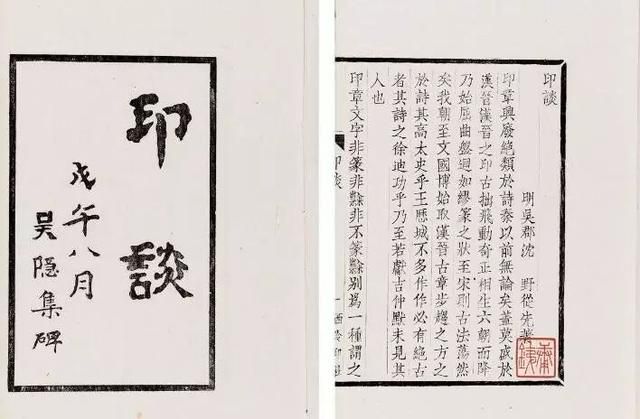 印談
戊午八月
吴隐集碑
印談
明吳郡沈 野從先著
印章興廢絕類於詩秦以前無論矣葢莫盛於
漢晉漢晉之印古拙飛動奇正相生六朝而降
乃始屈曲盤迴如繆篆之狀至宋則古法蕩然
矣我朝至文國博始取漢晉古章步趨之方之
於詩其高太史乎王歷城不多作作必有絕古
者其詩之徐迪功乎乃至若獻吉仲默未見其
人也
印章文字非篆非隸非不篆隸別爲一種謂之
印談
一